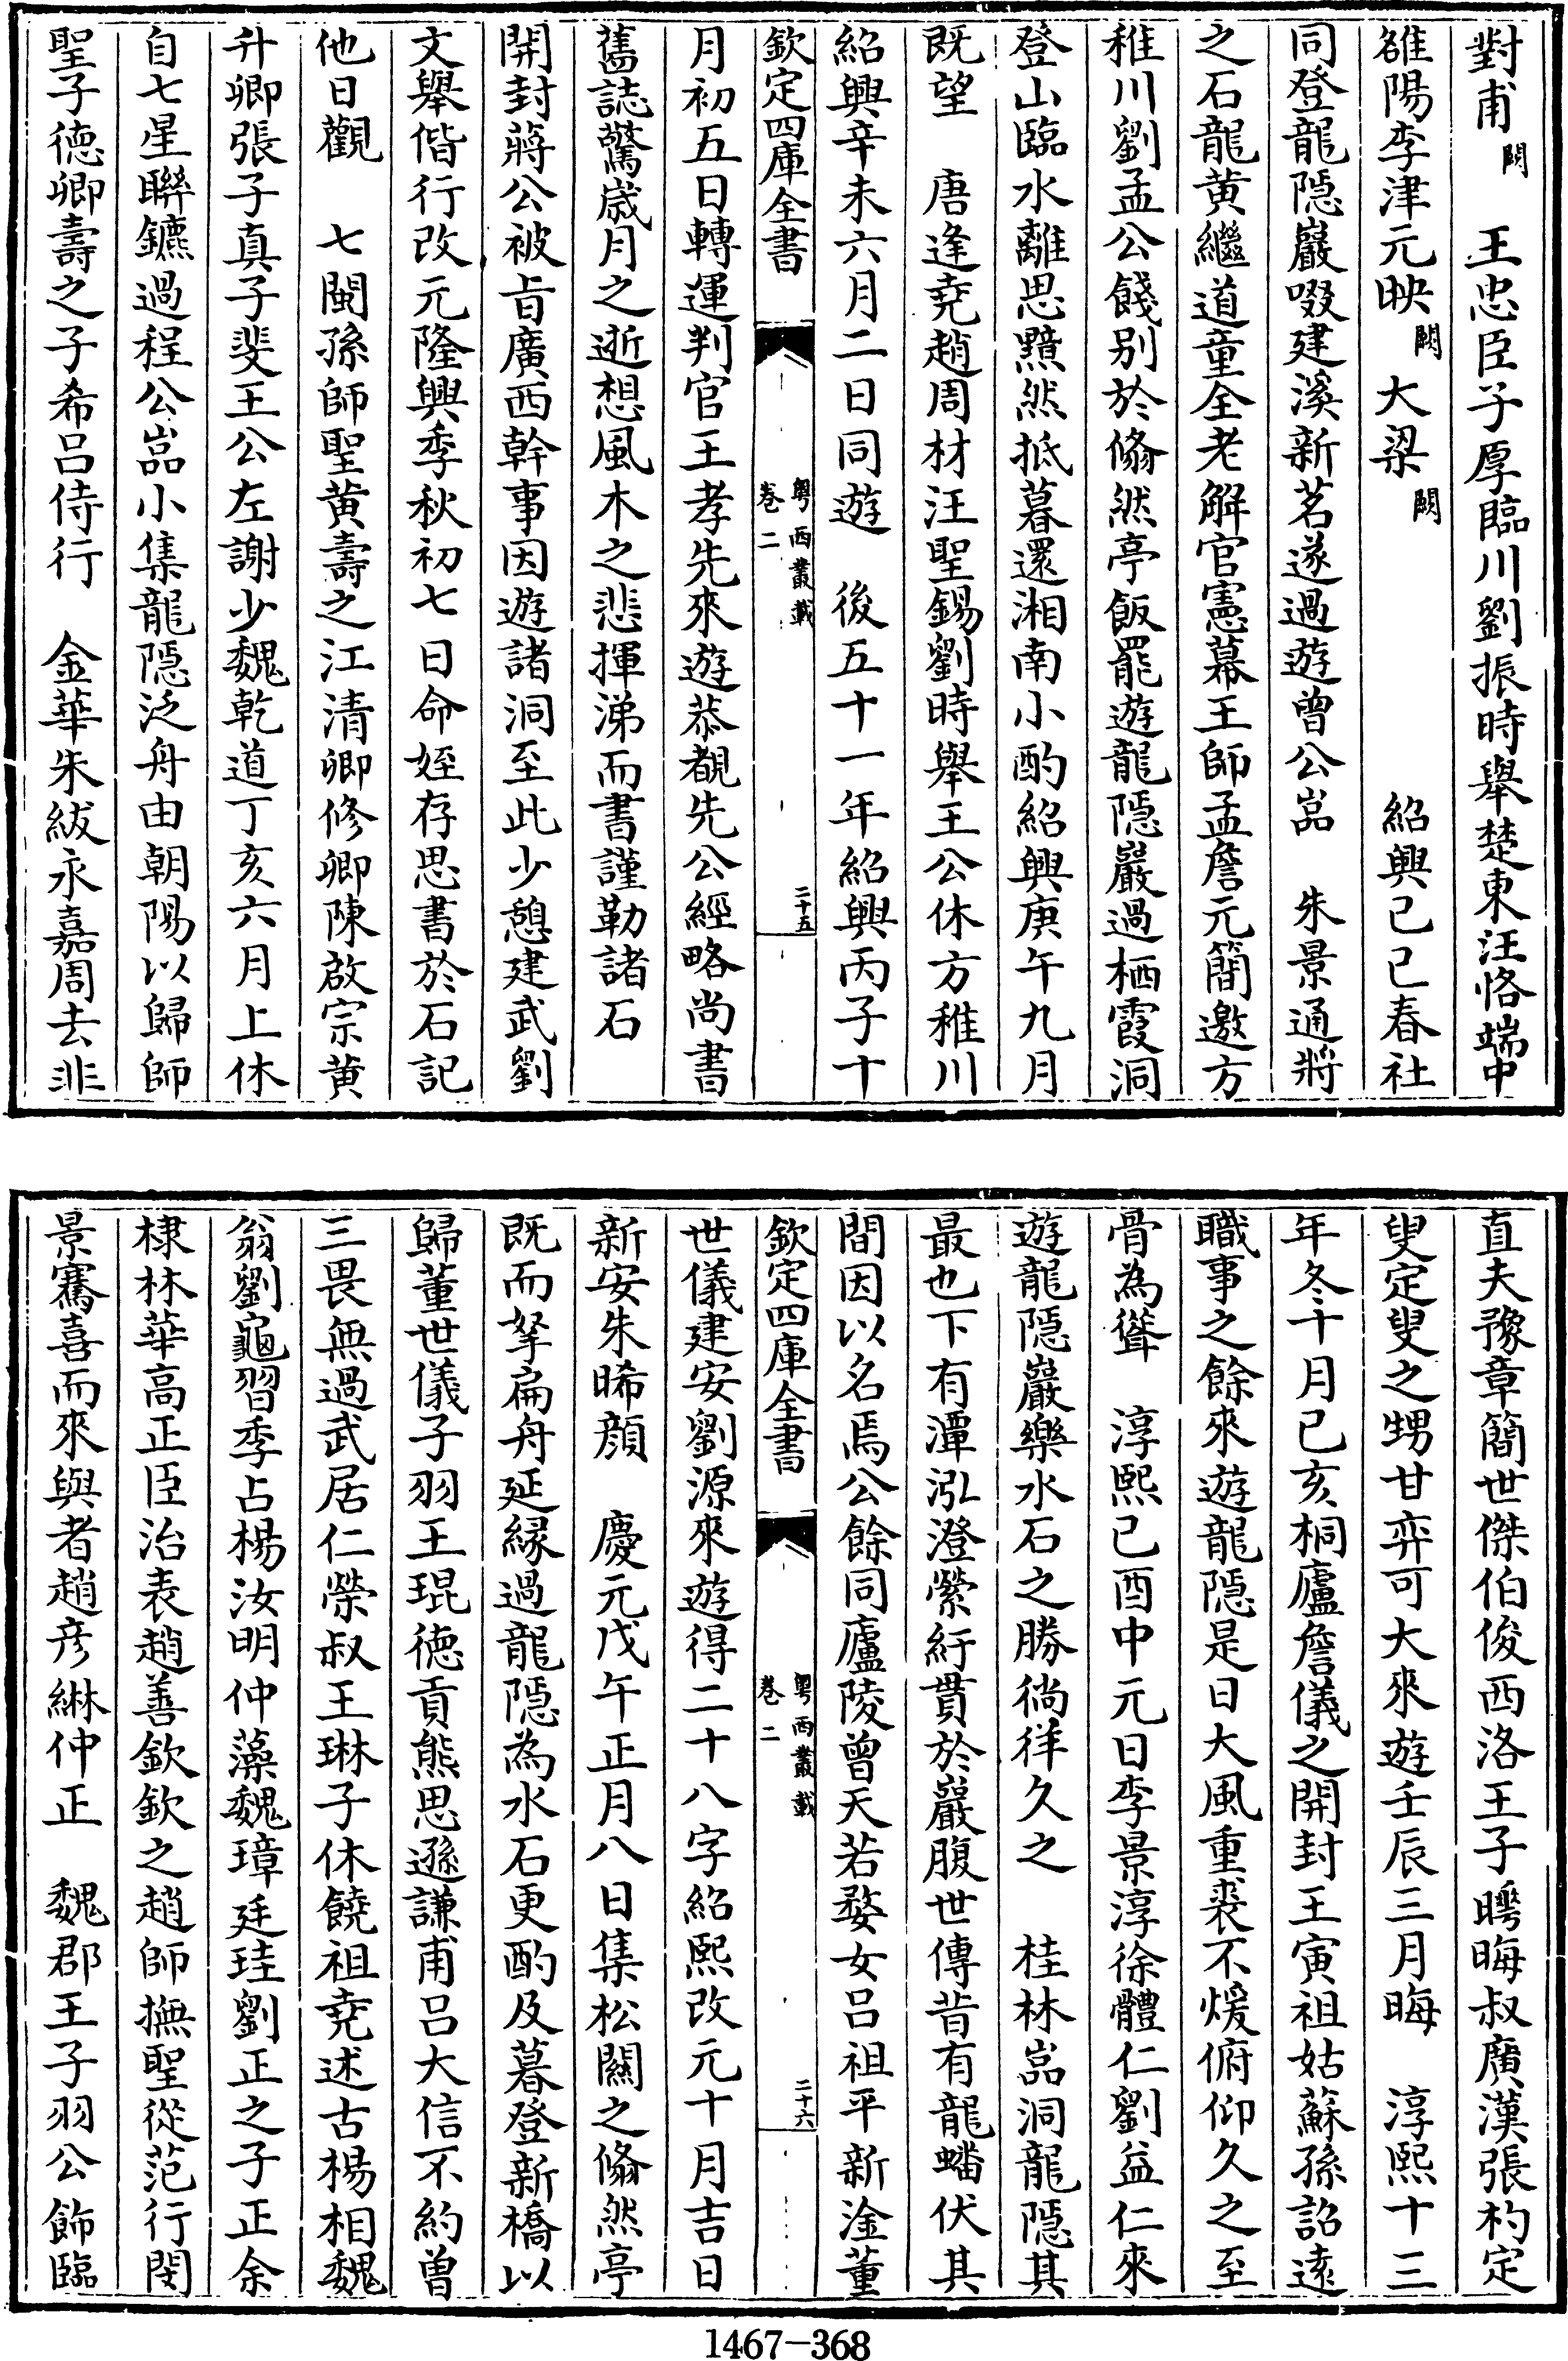 對甫闕　王忠臣子厚臨川劉振時舉楚東汪恪端中
雒陽李津元映闕大梁闕　紹興己巳春社
同登龍隠巖啜建溪新茗遂過遊曾公嵓　朱景通將
之石龍黄繼道童全老解官憲幕王師孟詹元簡邀方
稚川劉孟公餞别於翛然亭飯罷遊龍隠巖過栖霞洞
登山臨水離思黯然抵暮還湘南小酌紹興庚午九月
既望　唐逢堯趙周材汪聖錫劉時舉王公休方稚川
紹興辛未六月二日同遊　後五十一年紹興丙子十
欽定四庫全書　粤西叢載　卷二　二十五
月初五日轉運判官王孝先來遊恭覩先公經略尚書
舊誌驚嵗月之逝想風木之悲揮涕而書謹勒諸石
開封蔣公被㫖廣西幹事因遊諸洞至此少憩建武劉
文舉偕行改元隆興季秋初七日命姪存思書於石記
他日觀　七閩孫師聖黄壽之江清卿修卿陳啟宗黄
升卿張子真子斐王公左謝少魏乾道丁亥六月上休
自七星聯鑣過程公嵓小集龍隠泛舟由朝陽以歸師
聖子徳卿壽之子希吕侍行　金華朱紱永嘉周去非
直夫豫章簡世傑伯俊西洛王子聘晦叔廣漢張杓定
叟定叟之甥甘弈可大來遊壬辰三月晦　淳熙十三
年冬十月已亥桐廬詹儀之開封王寅祖姑蘇孫詔逺
職事之餘來遊龍隠是日大風重裘不煖俯仰久之至
骨為聳　淳熙己酉中元日李景淳徐體仁劉益仁來
遊龍隠巖樂水石之勝徜徉久之　桂林嵓洞龍隠其
最也下有潭泓澄縈紆貫於巖腹世傳昔有龍蟠伏其
間因以名焉公餘同廬陵曾天若婺女吕祖平新淦董
欽定四庫全書　粤西叢載　卷二　二十六
世儀建安劉源來遊得二十八字紹熙改元十月吉日
新安朱晞顔　慶元戊午正月八日集松關之翛然亭
既而拏扁舟延縁過龍隠為水石更酌及暮登新橋以
歸董世儀子羽王琨徳貢熊思遜謙甫吕大信不約曽
三畏無過武居仁榮叔王琳子休饒祖堯述古楊相魏
翁劉龜習季占楊汝明仲藻魏璋廷珪劉正之子正余
棣林華高正臣治表趙善欽欽之趙師撫聖從范行閔
景騫喜而來與者趙彦綝仲正　魏郡王子羽公飾臨
1467-368